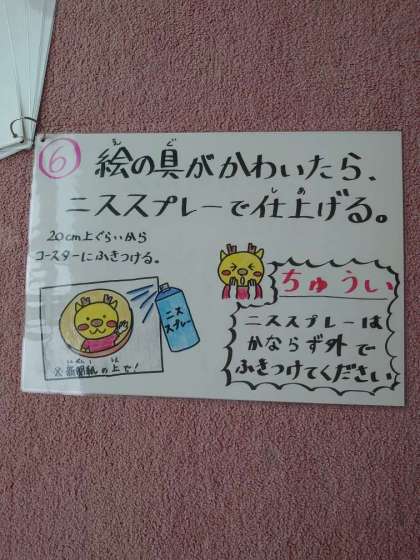 ⑥ 絵の具がかわいたら、
ニススプレーで仕上げる。
20cm上ぐらいから
コースターにふきつける。
ニス
スプレー
※新聞紙の上で!
ちゅうい
ニススプレーは
かならず外で
ふきつけてください